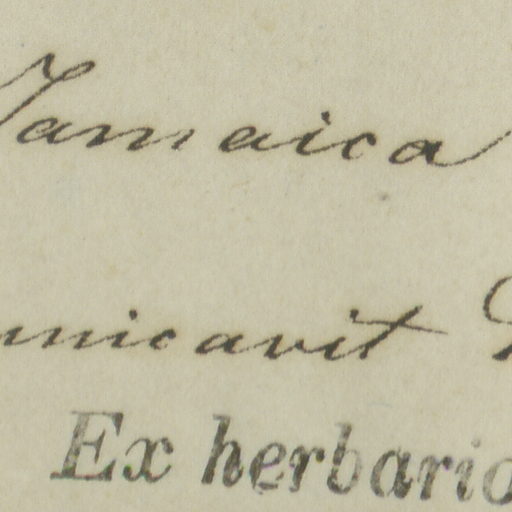 Jamaica
unicavit
Ex herbario